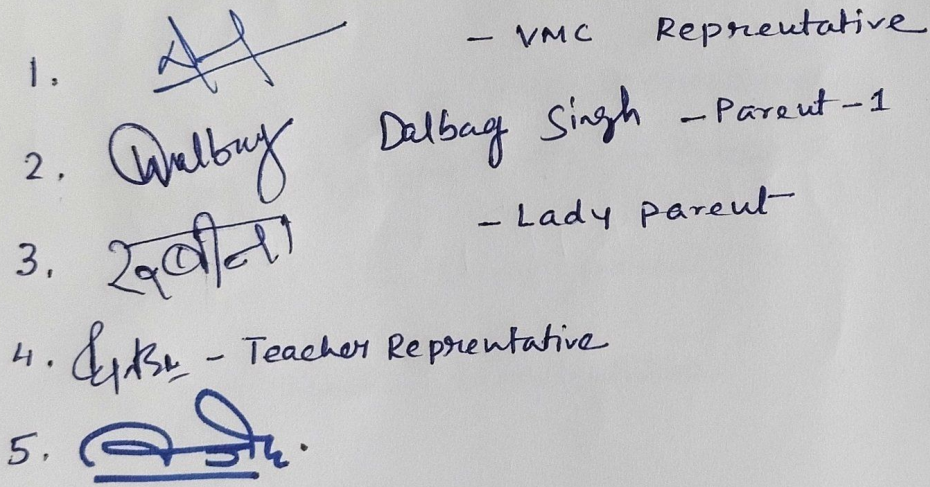 1. - VMC Repreutative
2. Dalbag Dalbag Singh - Parent - 1
3. रुबीना - Lady parent
4. - Teacher Repreutative
5.